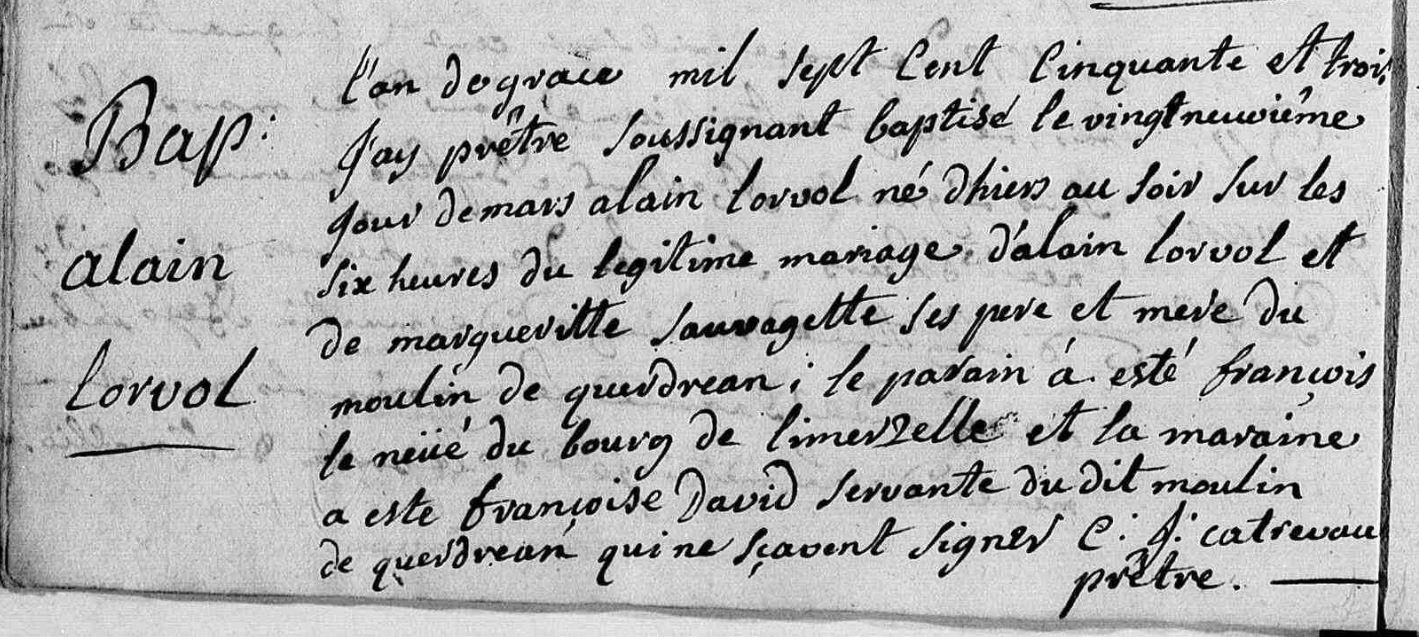 Bap:
alain
lorvol
l'an de grace mil sept Cent Cinquante et trois
J'ay prêtre soussignant baptisé le vingtneuviême
jour de mars alain lorvol né d'hiers au soir sur les
six heures du legitime mariage d'alain lorvol et
de margueritte sauvagette ses pere et mere du
moulin de querdrean; le parain á esté françois
le neüé du bourg de limerzelle et la maraine
a este françoise David servante du dit moulin
de querdrean qui ne sçavent signer C: J: catrevau
prêtre.